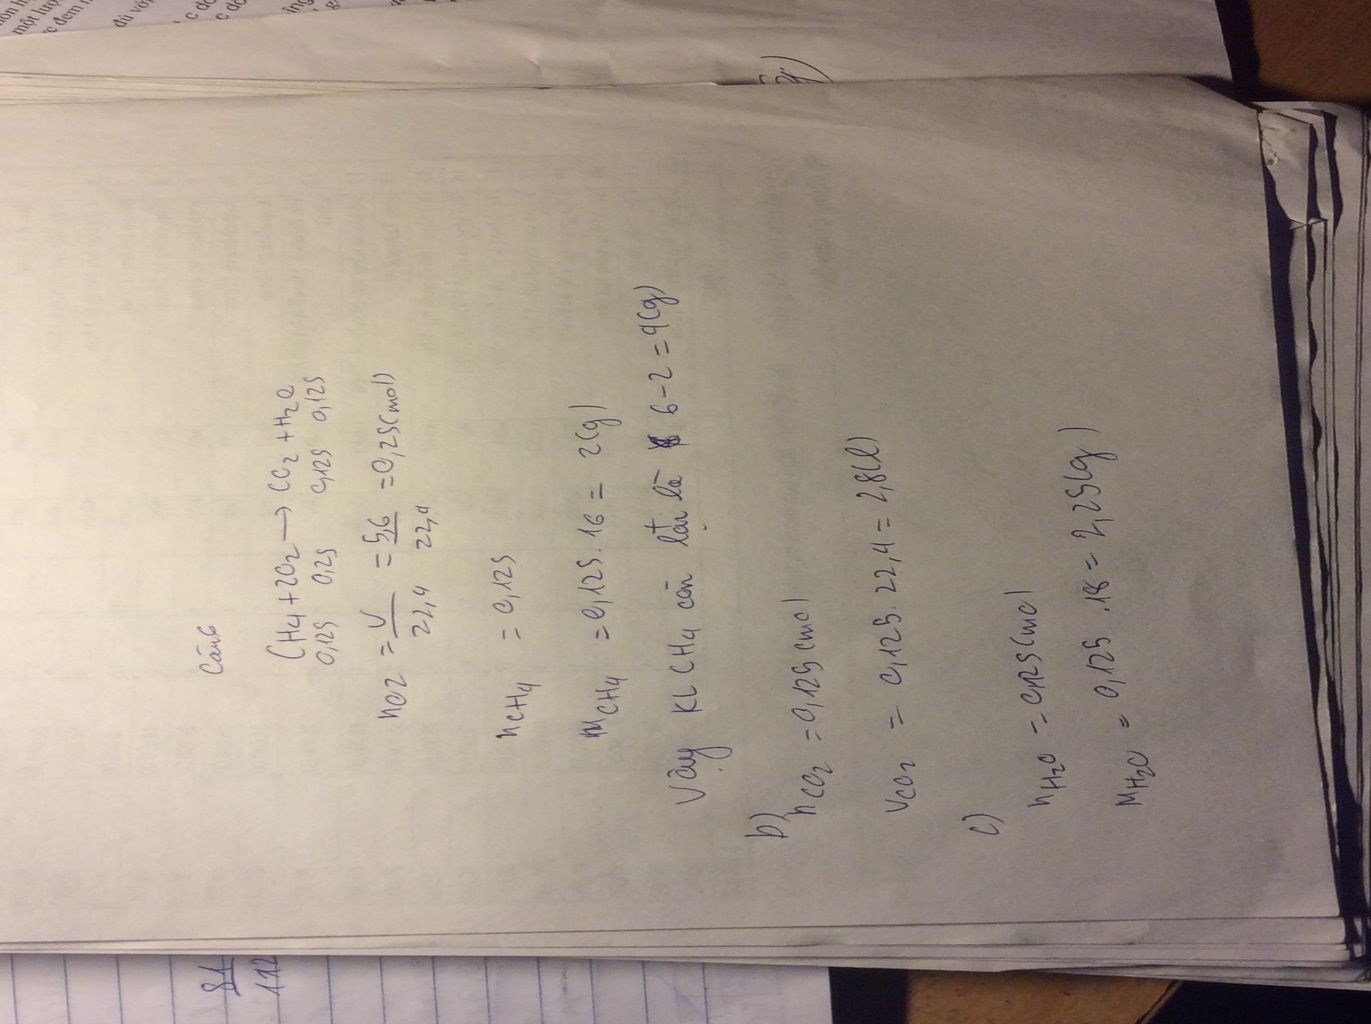 Câu 6
CH4 + 2O2 → CO2 + H2O
0,125 0,25 0,125 0,125
nO2 = V/22,4 = 5,6/22,4 = 0,25(mol)
nCH4 = 0,125
mCH4 = 0,125.16 = 2(g)
Vậy KLCH4 còn lại là 6-2=4(g)
b)
nCO2 = 0,125(mol
VCO2 = 0,125.22,4 = 2,8(l)
c)
nH2O = 0,125(mol
MH2O = 0,125.18 = 2,25(g)
81
112
một lượ